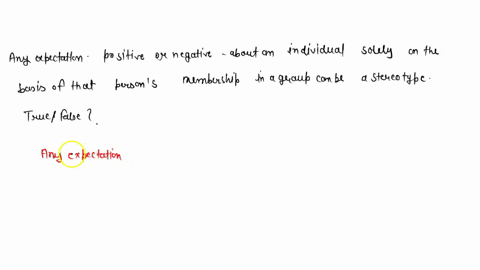 Any expectation. positive or negative - about an individual solely on the
basis of that person's membership in a group can be a stereotype.
True/False?.
Any expectation